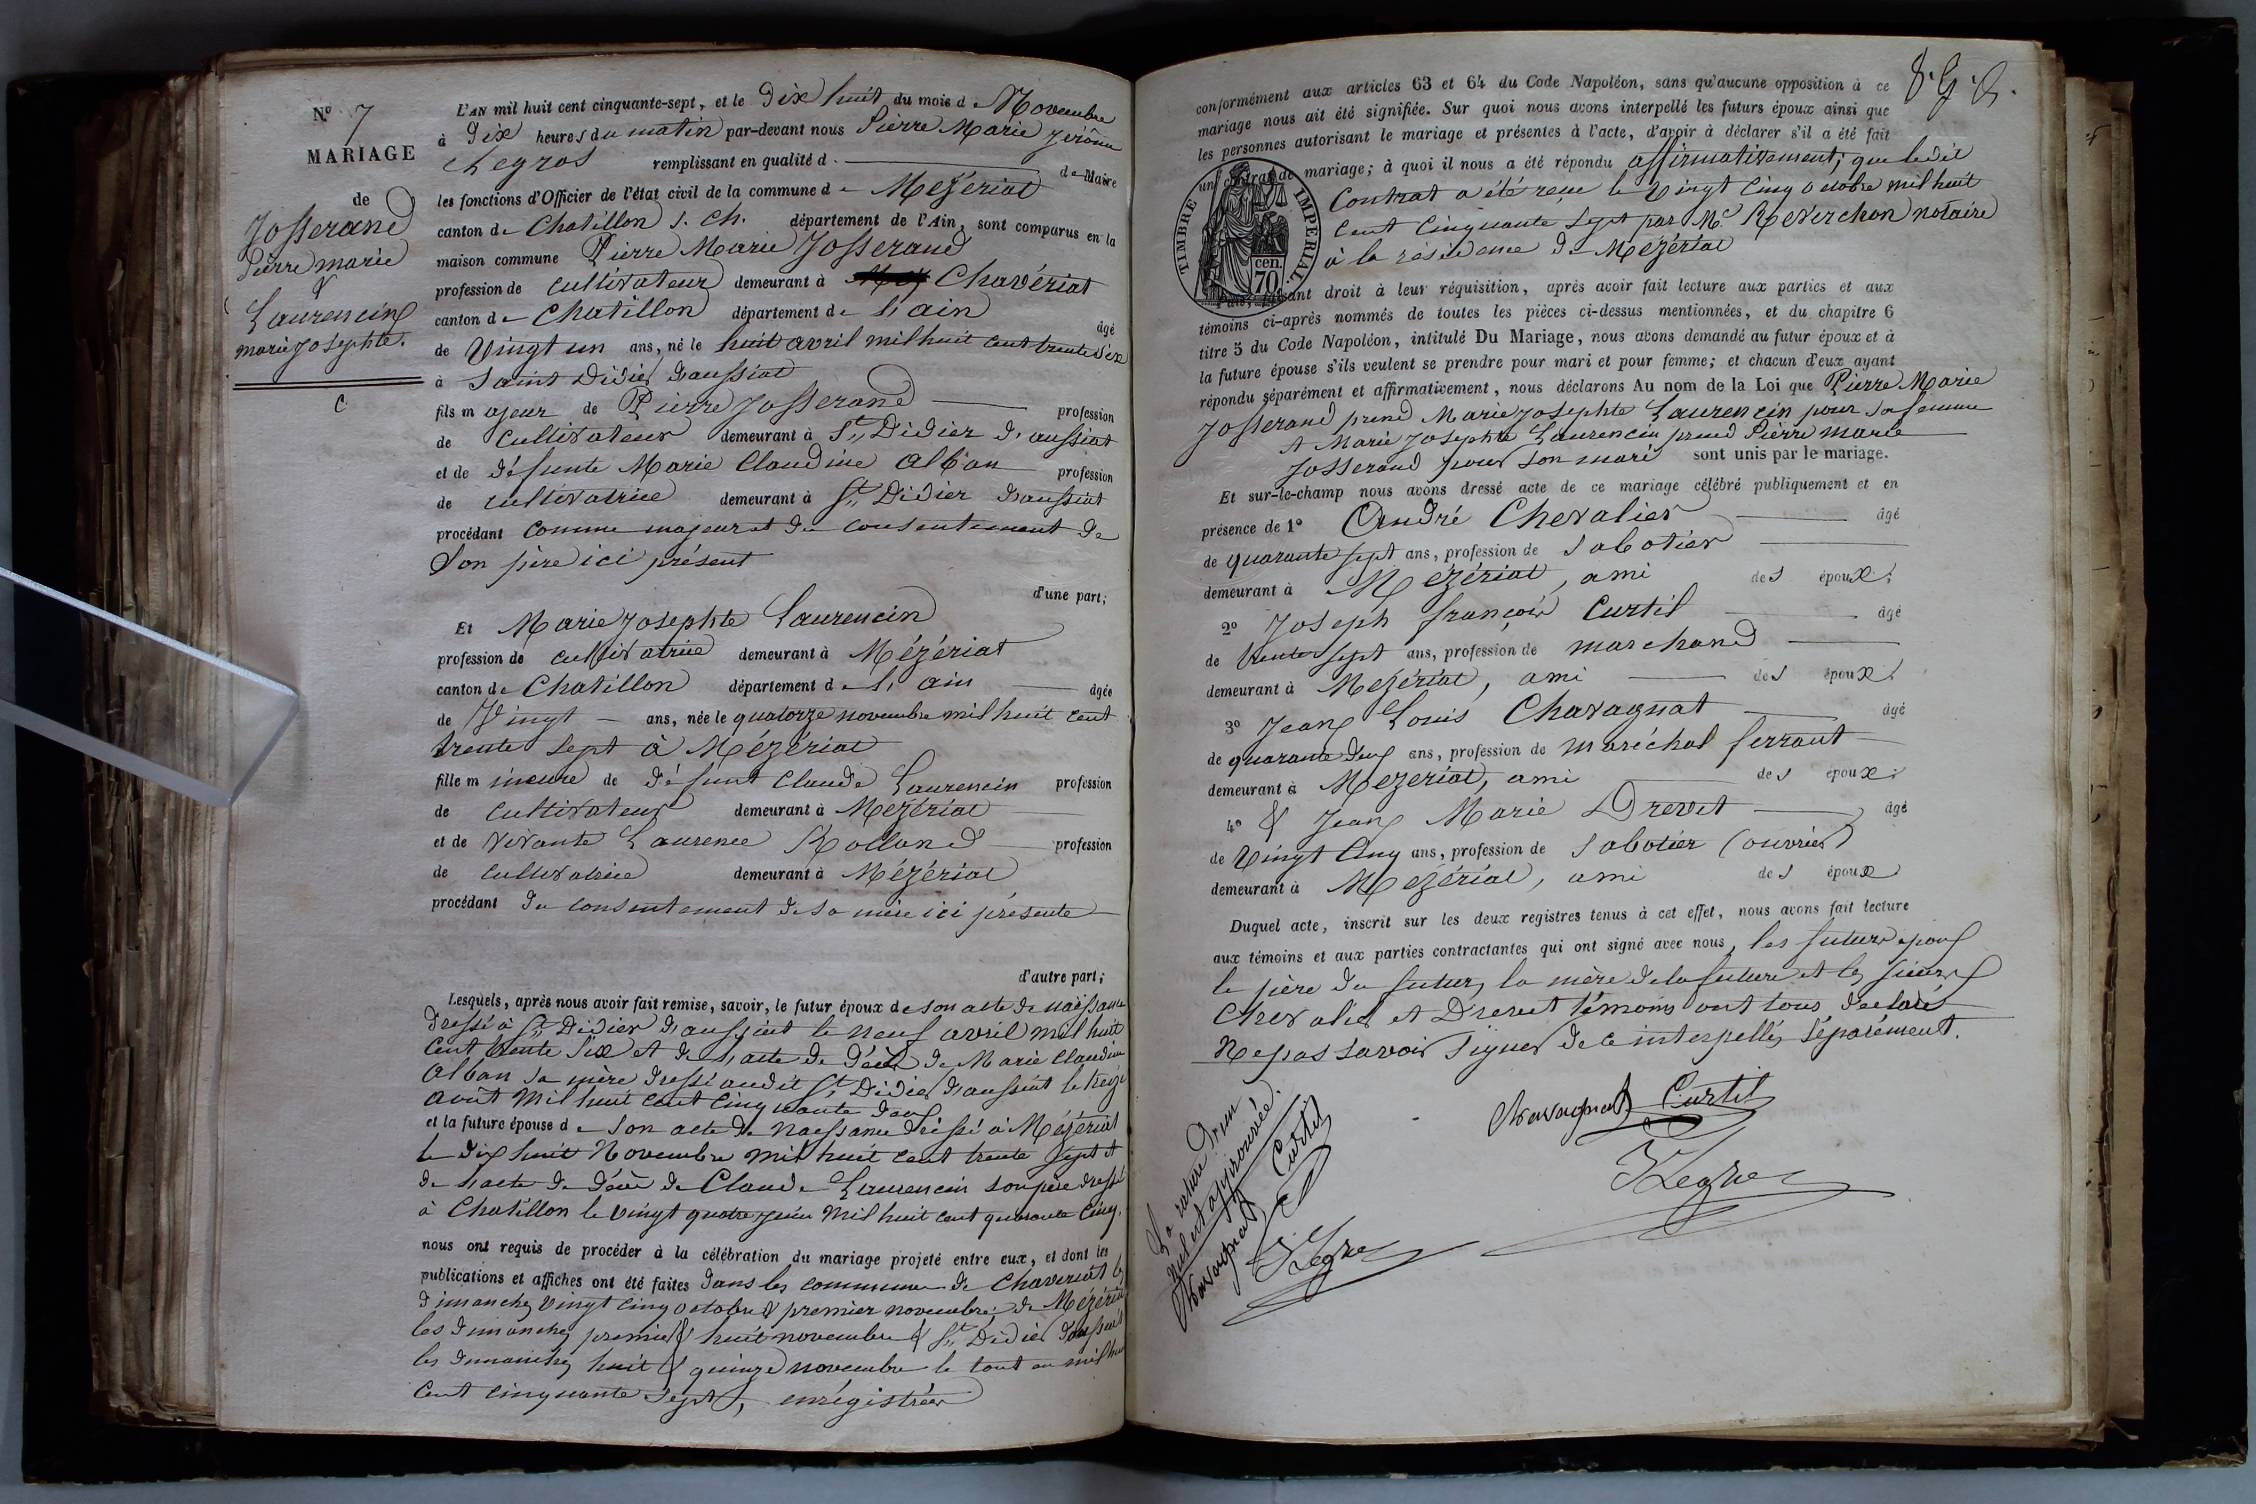 N° 7
MARIAGE
de
Josserand
Pierre marie
&
Laurencin
marie Josephte.
C
L'AN mil huit cent cinquante-sept, et le Dix huit du mois de Novembre
à Dix heures du matin par-devant nous Pierre Marie Jérôme
Legros remplissant en qualité d de Maire
les fonctions d'Officier de l'état civil de la commune de Mézériat
canton de Chatillon s. Ch. département de l'Ain, sont comparus en la
maison commune Pierre Marie Josserand
profession de cultivateur demeurant à Chavériat
canton de Chatillon département de L'ain âgé
de Vingt un ans, né le huit avril mil huit cent trente six
à Saint Didier d'aussiat
fils majeur de Pierre Josserand profession
de cultivateur demeurant à St Didier d'aussiat
et de défunte Marie Claudine Alban profession
de cultivatrice demeurant à St Didier d'aussiat
procédant comme majeur et du consentement de
Son père ici présent
d'une part;
Et Marie Josephte Laurencin
profession de cultivatrice demeurant à Mézériat
canton de Chatillon département de L'ain âgée
de Vingt ans, née le quatorze novembre mil huit cent
trente sept à Mézériat
fille mineure de défunt Claude Laurencin profession
de cultivateur demeurant à Mézériat
et de vivante Laurence Rolland profession
de cultivatrice demeurant à Mézériat
procédant du consentement de sa mère ici présente
d'autre part;
Lesquels, après nous avoir fait remise, savoir, le futur époux de son acte de naissance
dressé à St Didier d'aussiat le neuf avril mil huit
cent trente six et de l'acte de décès de Marie Claudine
Alban sa mère dressé audit St Didier d'aussiat le treize
août mil huit cent cinquante deux
et la future épouse de son acte de naissance dressé à Mézériat
le dix huit Novembre mil huit cent trente sept et
de l'acte de décès de Claude Laurencin son père dressé
à Chatillon le vingt quatre juin mil huit cent quarante cinq.
nous ont requis de procéder à la célébration du mariage projeté entre eux, et dont les
publications et affiches ont été faites dans les communes de Chaveriat les
Dimanches vingt cinq octobre & premier novembre; de Mézériat
les dimanches premier & huit novembre & St Didier d'aussiat
les dimanches huit & quinze novembre le tout an mil huit
cent cinquante sept, enrégistrées
conformément aux articles 63 et 64 du Code Napoléon, sans qu'aucune opposition à ce
mariage nous ait été signifiée. Sur quoi nous avons interpellé les futurs époux ainsi que
les personnes autorisant le mariage et présentes à l'acte, d'avoir à déclarer s'il a été fait
un contrat de mariage; à quoi il nous a été répondu affirmativement; que ledit
Contrat a été reçu le Vingt Cinq octobre mil huit
cent cinquante sept par Me Reverchon notaire
à la résidence de Mézériat
TIMBRE IMPÉRIAL.
cen.
70
Puis, faisant droit à leur réquisition, après avoir fait lecture aux parties et aux
témoins ci-après nommés de toutes les pièces ci-dessus mentionnées, et du chapitre 6
titre 5 du Code Napoléon, intitulé Du Mariage, nous avons demandé au futur époux et à
la future épouse s'ils veulent se prendre pour mari et pour femme; et chacun d'eux ayant
répondu séparément et affirmativement, nous déclarons Au nom de la Loi que Pierre Marie
Josserand prend Marie Josephte Laurencin pour sa femme
et Marie Josephte Laurencin prend Pierre Marie
Josserand pour son mari sont unis par le mariage.
Et sur-le-champ nous avons dressé acte de ce mariage célébré publiquement et en
présence de 1° André Chevalier âgé
de quarante sept ans, profession de sabotier
demeurant à Mézériat, ami des époux;
2° Joseph françois Curtil âgé
de trente sept ans, profession de marchand
demeurant à Mézériat, ami des époux;
3° Jean Louis Chavagnat âgé
de quarante deux ans, profession de maréchal ferrant
demeurant à Mézériat, ami des époux;
4° & Jean Marie Drevet âgé
de Vingt Cinq ans, profession de sabotier (ouvrier)
demeurant à Mézériat, ami des époux
Duquel acte, inscrit sur les deux registres tenus à cet effet, nous avons fait lecture
aux témoins et aux parties contractantes qui ont signé avec nous, les futurs époux
le père du futur, la mère de la future et les sieurs
Chevalier et Drevet témoins ont tous déclaré
Ne pas savoir signer de ce interpellés séparément.
Chavagnat Curtil
Legros
La rature d'un
mot est approuvée.
Chavagnat Curtil
Legros